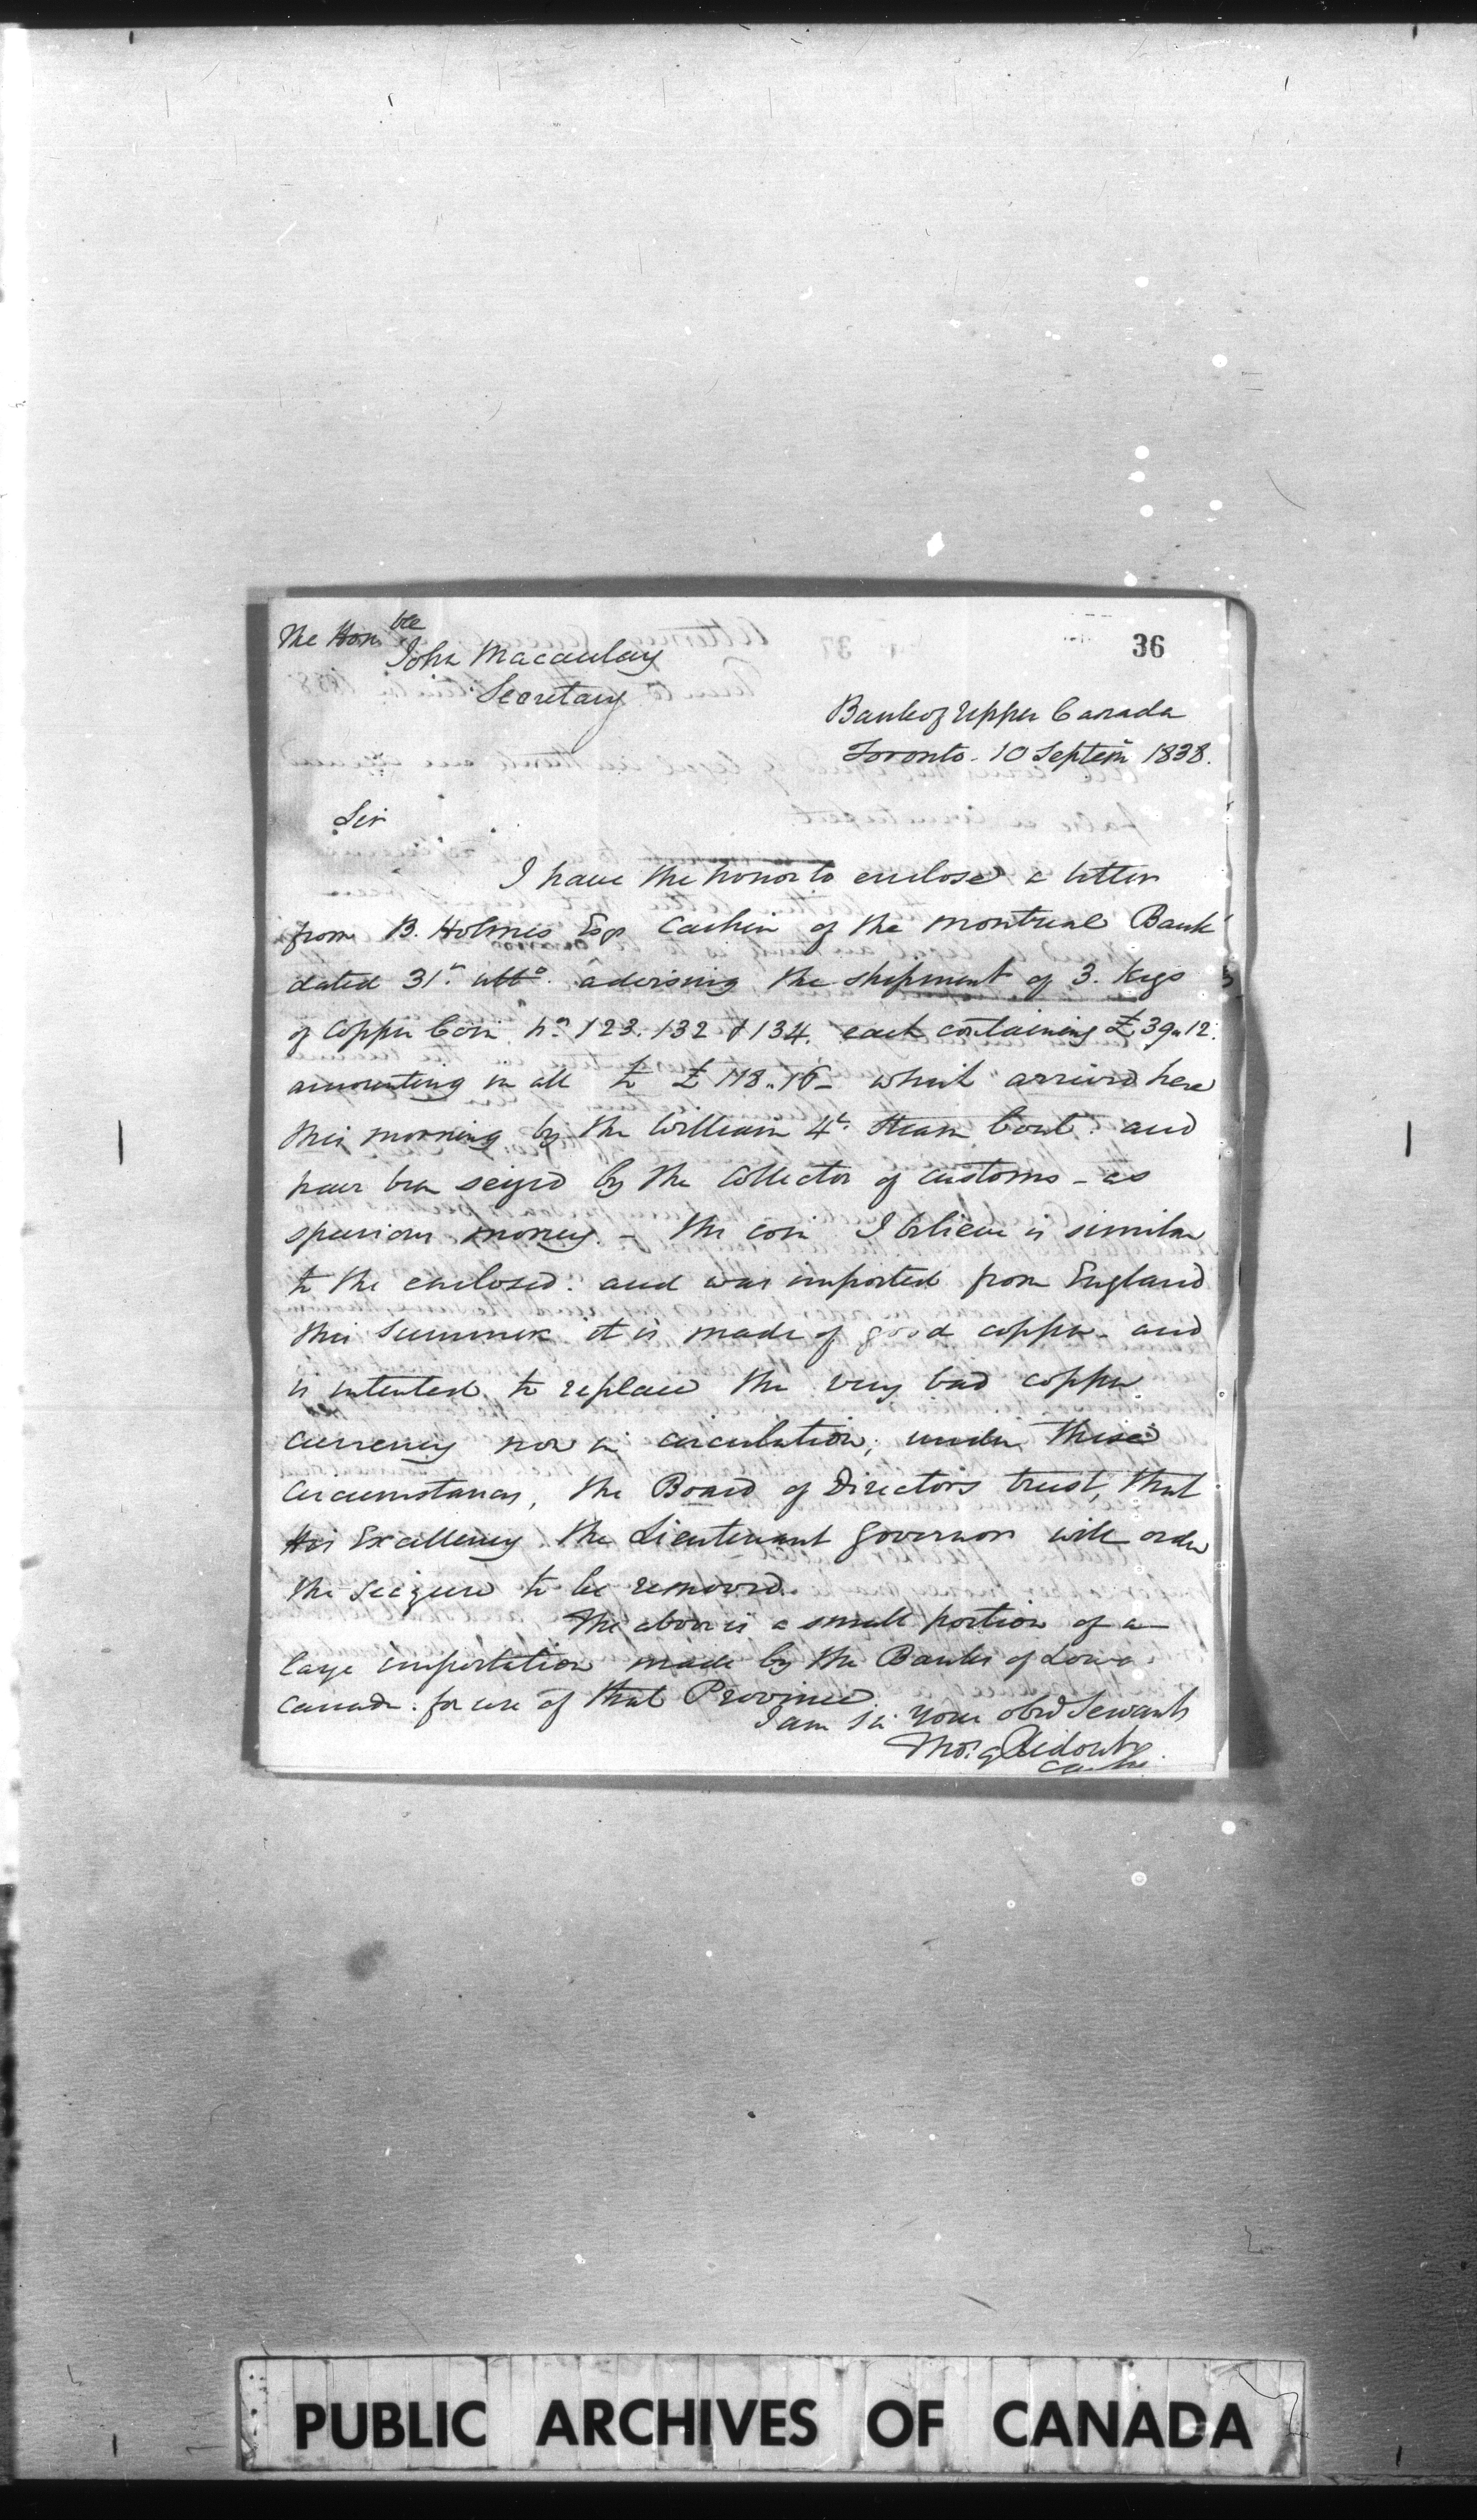 The Honble
John Macaulay
Secretary
36
Bank of Upper Canada
Toronto. 10 Septem 1838.
Sir
I have the honor to enclose a letter
from B. Holmes Esqr Cashier of the Montreal Bank
dated 31st ulto. advising the shipment of 3. Kegs
of Copper Coin no 123. 132 & 134. each containing £39"12.
amounting in all to £118"16 - which arrived here
this morning by the William 4th Steam boat. and
have been seized by the Collector of Customs - as
spurious money. - The coin I believe is similar
to the enclosed. and was imported from England
this summer it is made of good copper - and
is intended to replace the very bad copper
currency now in circulation; under these
circumstances, the Board of Directors trust, that
His Excellency the Lieutenant Governor will order
the seizure to be removed.
The above is a small portion of a
large importation made by the Banks of Lower
Canada. for use of that Province
I am Sir your obed Servant
Thos. G Ridout
Cashr.
PUBLIC ARCHIVES OF CANADA